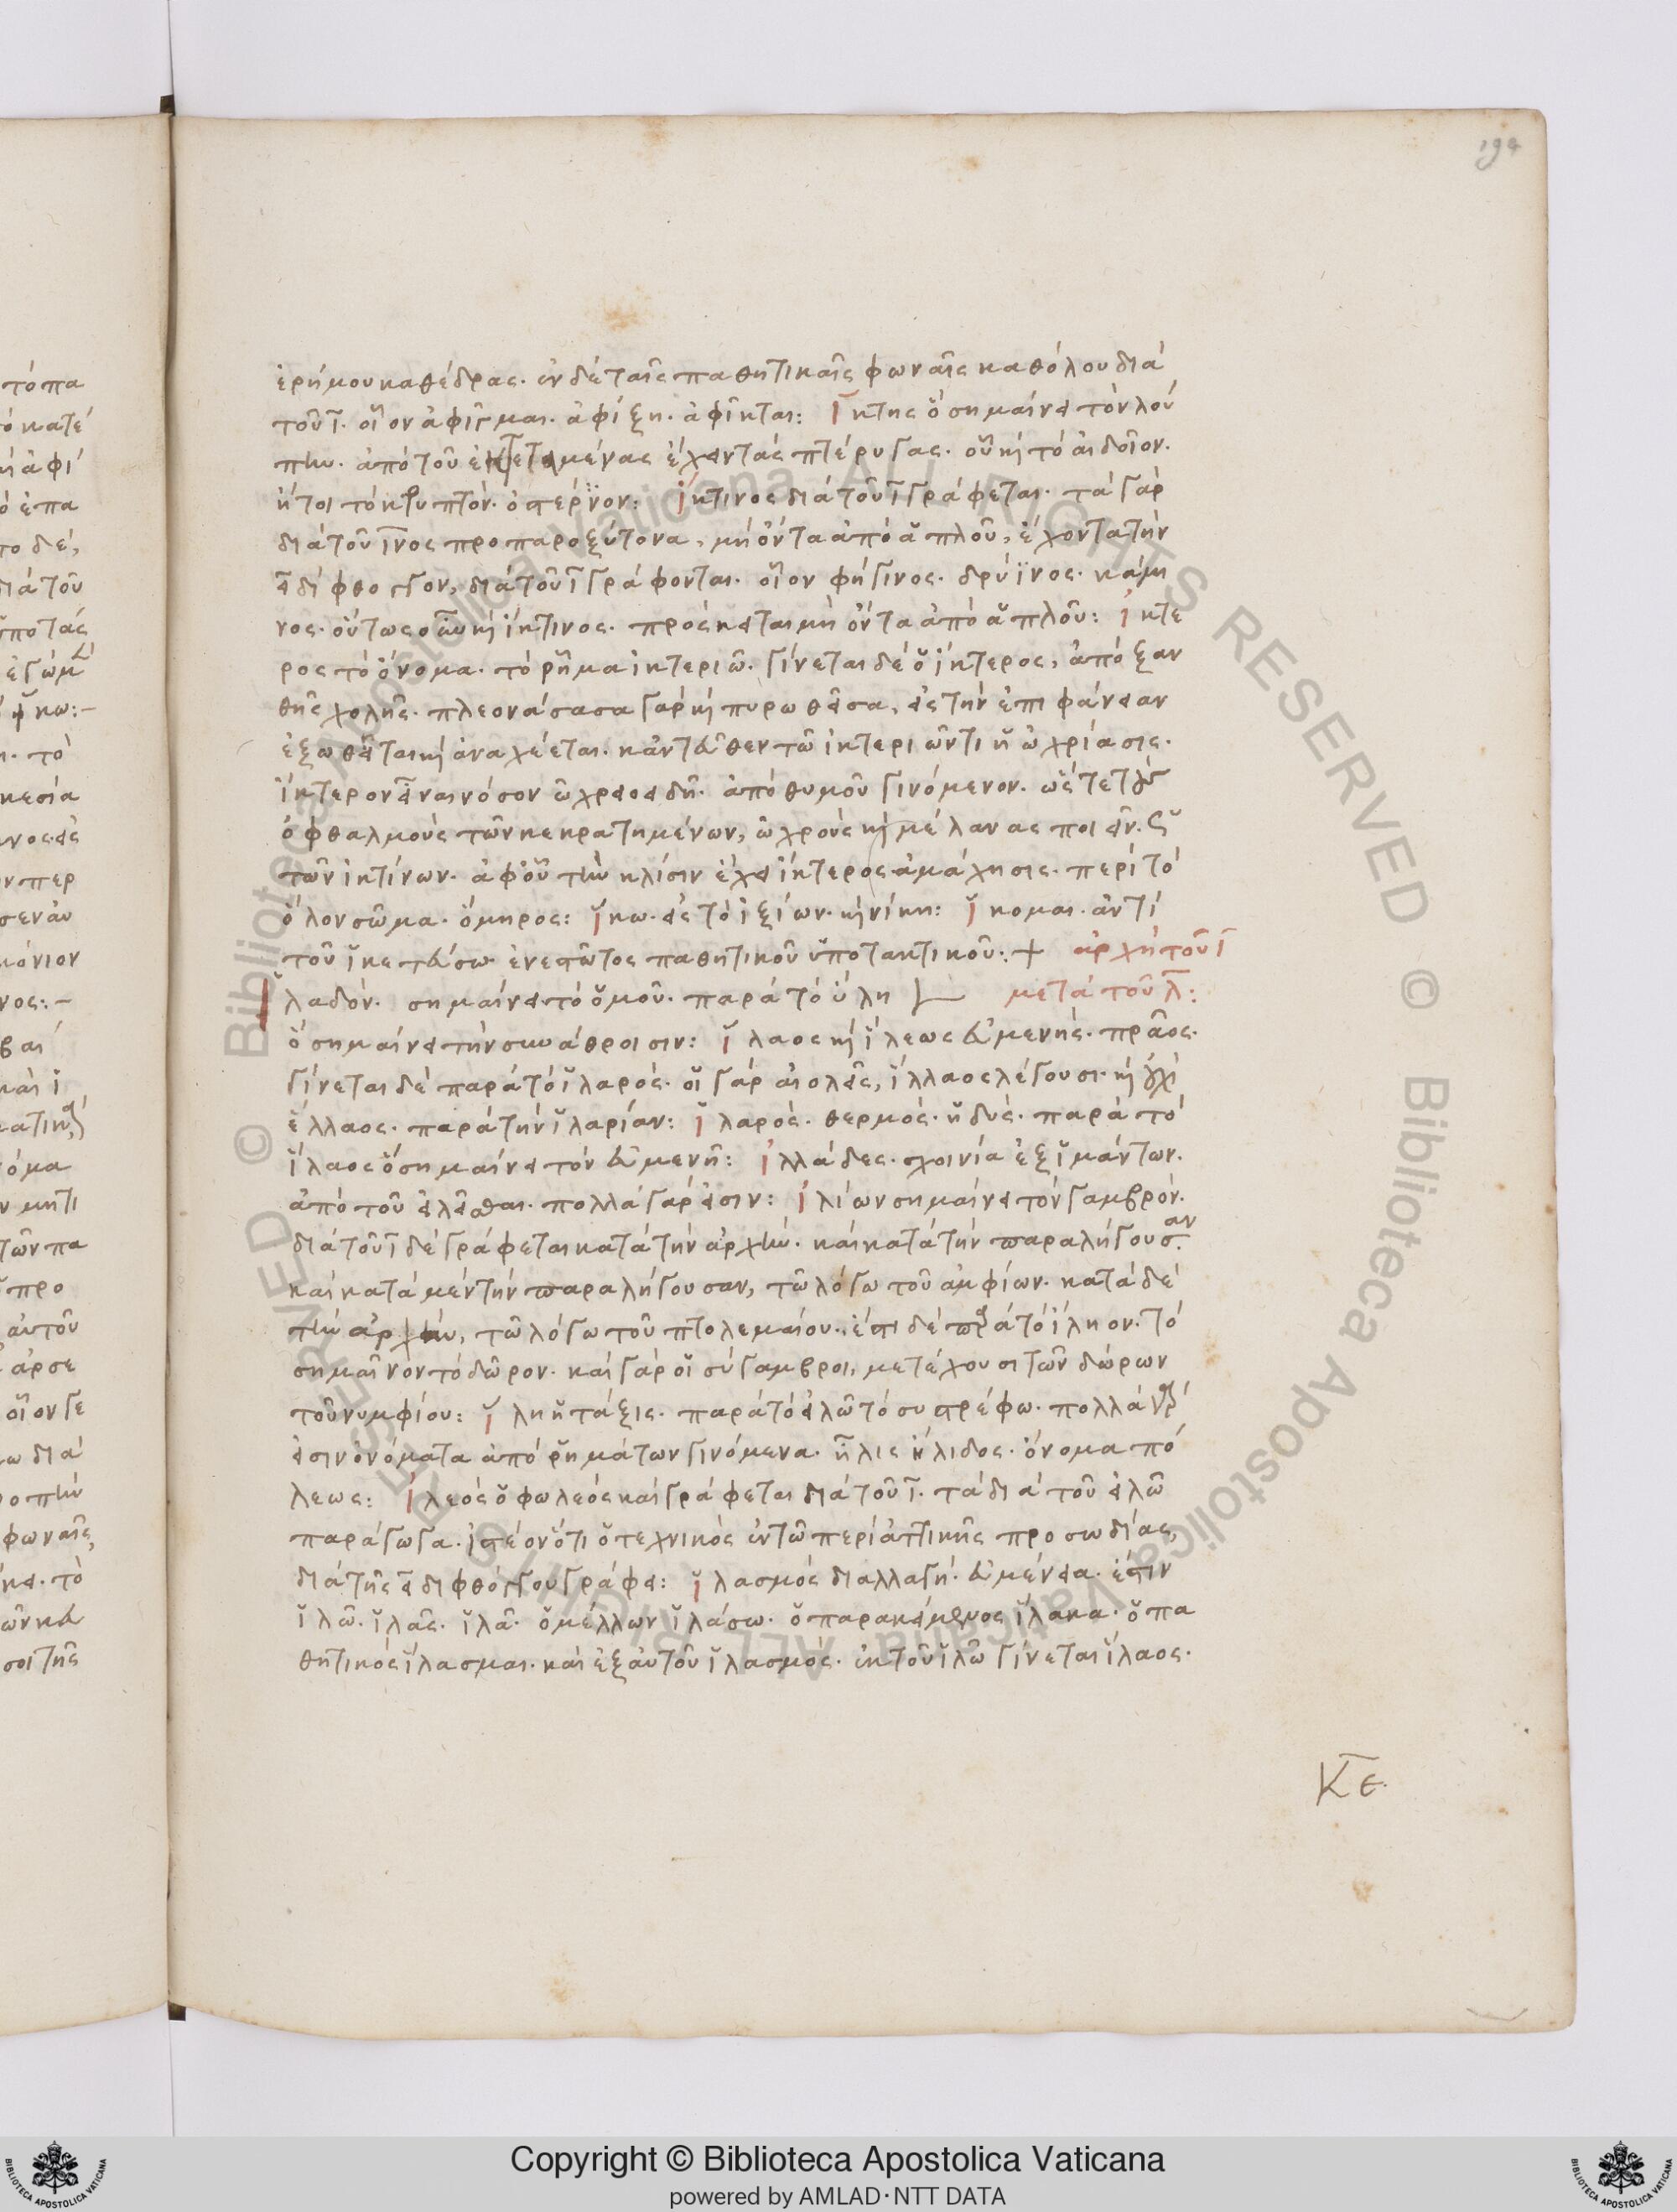 194
ἐρήμου καθέδρας. ἐν δὲ ταῖς παθητικαῖς φωναῖς καθόλου διὰ
τοῦ ῑ. οἷον ἀφῖγμαι. ἀφίξη. ἀφῖκται: ἵκτης ὃ σημαίνει τὸν λού
πην. ἀπὸ τοῦ ἐκτεταμένας ἔχειν τὰς πτέρυγας. οὗ καὶ τὸ αἰδοῖον.
ἤτοι τὸ κρυπτόν. ὁ στέρϊον: ἴκτινος διὰ τοῦ ῑ γράφεται. τὰ γὰρ
διὰ τοῦ ῑνος προπαροξύτονα, μὴ ὄντα ἀπὸ ἁπλοῦ, ἔχοντα τὴν
ει δίφθογγον, διὰ τοῦ ῑ γράφονται. οἷον φήγινος. δρύϊνος. κάμι
νος. οὕτως οὖν καὶ ἴκτινος. πρόσκειται μὴ ὄντα ἀπὸ ἁπλοῦ: ἴκτε
ρος τὸ ὄνομα. τὸ ῥῆμα ἰκτεριῶ. γίνεται δὲ ὁ ἴκτερος, ἀπὸ ξαν
θῆς χολῆς. πλεονάσασα γὰρ καὶ πυρωθεῖσα, εἰς τὴν ἐπιφάνειαν
ἐξωθεῖται καὶ ἀναχέεται. κἀντεῦθεν τῶ ἰκτεριῶντι ἡ ὠχρίασις.
ἴκτερον εἶναι νόσον ὠχροειδῆ. ἀπὸ θυμοῦ γινόμενον. ὥστε τοὺς
ὀφθαλμοὺς τῶν κεκρατημένων, ὠχροὺς καὶ μέλανας ποιεῖν.
τῶν ἰκτίνων. ἀφ' οὗ τὴν κλίσιν ἔχει ἴκτερος ἀμάλησις. περὶ τὸ
ὅλον σῶμα. ὅμηρος: ἵκω. εἰς τὸ ἰξίων. καὶ νίκη: ἵκομαι. ἀντὶ
τοῦ ἱκετεύσω ἐνεστῶτος παθητικοῦ ὑποτακτικοῦ: + ἀρχὴ τοῦ ῑ
ἰλαδόν. σημαίνει τὸ ὁμοῦ. παρὰ τὸ ὕλη μετὰ τοῦ λ:
ὃ σημαίνει τὴν συνάθροισιν: ἵλαος καὶ ἵλεως εὐμενής. πρᾶος.
γίνεται δὲ παρὰ τὸ ἱλαρός. οἱ γὰρ αἰολεῖς, ἵλλαος λέγουσι. καὶ οὐχὶ
ἕλλαος. παρὰ τὴν ἱλαρίαν: ἱλαρός. θερμός. ἡδύς. παρὰ τὸ
ἵλαος ὃ σημαίνει τὸν εὐμενῆ: ἰλλάδες. σχοινία ἐξ ἱμάντων.
ἀπὸ τοῦ εἰλεῖσθαι. πολλὰ γάρ εἰσιν: ἰλίων σημαίνει τὸν γαμβρόν.
διὰ τοῦ ῑ δὲ γράφεται κατὰ τὴν ἀρχήν. καὶ κατὰ τὴν παραλήγουσαν.
καὶ κατὰ μὲν τὴν παραλήγουσαν, τῶ λόγω τοῦ ἀμφίων. κατὰ δὲ
τὴν ἀρχήν, τῶ λόγω τοῦ πτολεμαίου. ἔστι δὲ παρὰ τὸ ἴλιον. τὸ
σημαῖνον τὸ δῶρον. καὶ γὰρ οἱ σύγαμβροι, μετέχουσι τῶν δώρων
τοῦ νυμφίου: ἵλη ἡ τάξις. παρὰ τὸ εἰλῶ τὸ συστρέφω. πολλὰ γάρ
εἰσιν ὀνόματα ἀπὸ ῥημάτων γινόμενα. ἦλις ἤλιδος. ὄνομα πό
λεως: ἰλεός ὁ φωλεός καὶ γράφεται διὰ τοῦ ῑ. τὰ διὰ τοῦ εἰλῶ
παράγωγα. ἰστέον ὅτι ὁ τεχνικὸς ἐν τῶ περὶ ἀττικῆς προσωδίας,
διὰ τῆς ει διφθόγγου γράφει: ἱλασμός διαλλαγή. εὐμένεια. ἔστιν
ἱλῶ. ἱλᾶς. ἱλᾶ. ὁ μέλλων ἱλάσω. ὁ παρακείμενος ἵλακα. ὁ πα
θητικὸς ἵλασμαι. καὶ ἐξ αὐτοῦ ἱλασμός. ἐκ τοῦ ἱλῶ γίνεται ἵλαος.
κε.
Copyright © Biblioteca Apostolica Vaticana
powered by AMLAD·NTT DATA